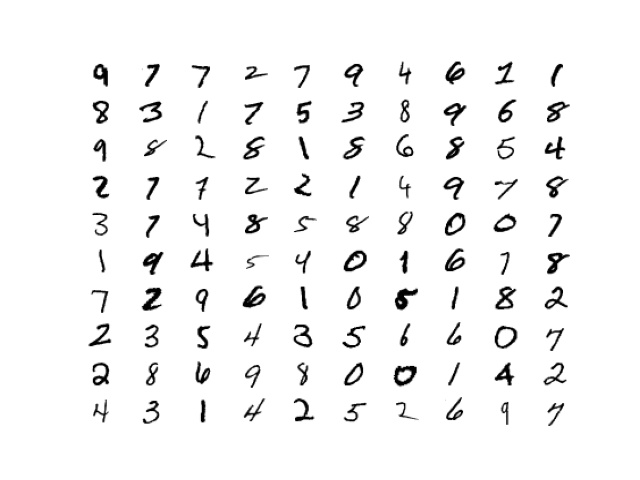 9 7 7 2 7 9 4 6 1 1
8 3 1 7 5 3 8 9 6 8
9 8 2 8 1 8 6 8 5 4
2 7 7 2 2 1 4 9 7 8
3 7 4 8 5 8 8 0 0 7
1 9 4 5 4 0 1 6 7 8
7 2 9 6 1 0 5 1 8 2
2 3 5 4 3 5 6 6 0 7
2 8 6 9 8 0 0 1 4 2
4 3 1 4 2 5 2 6 9 7